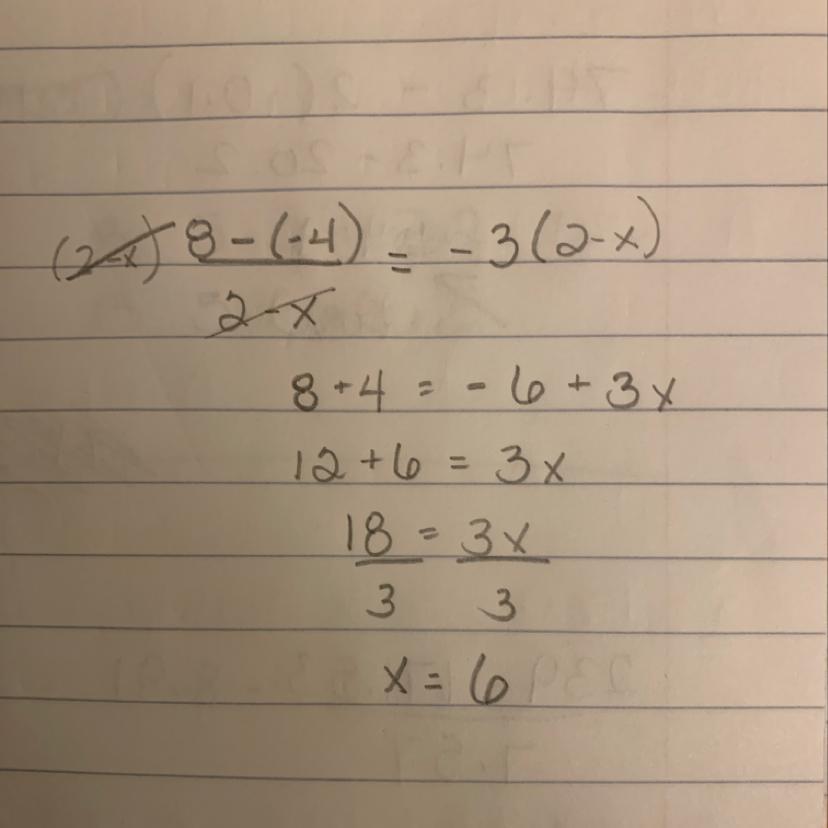 (2-x) 8-(-4) = -3(2-x)
2-x
8+4 = -6+3x
12+6 = 3x
18 = 3x
3 3
x = 6